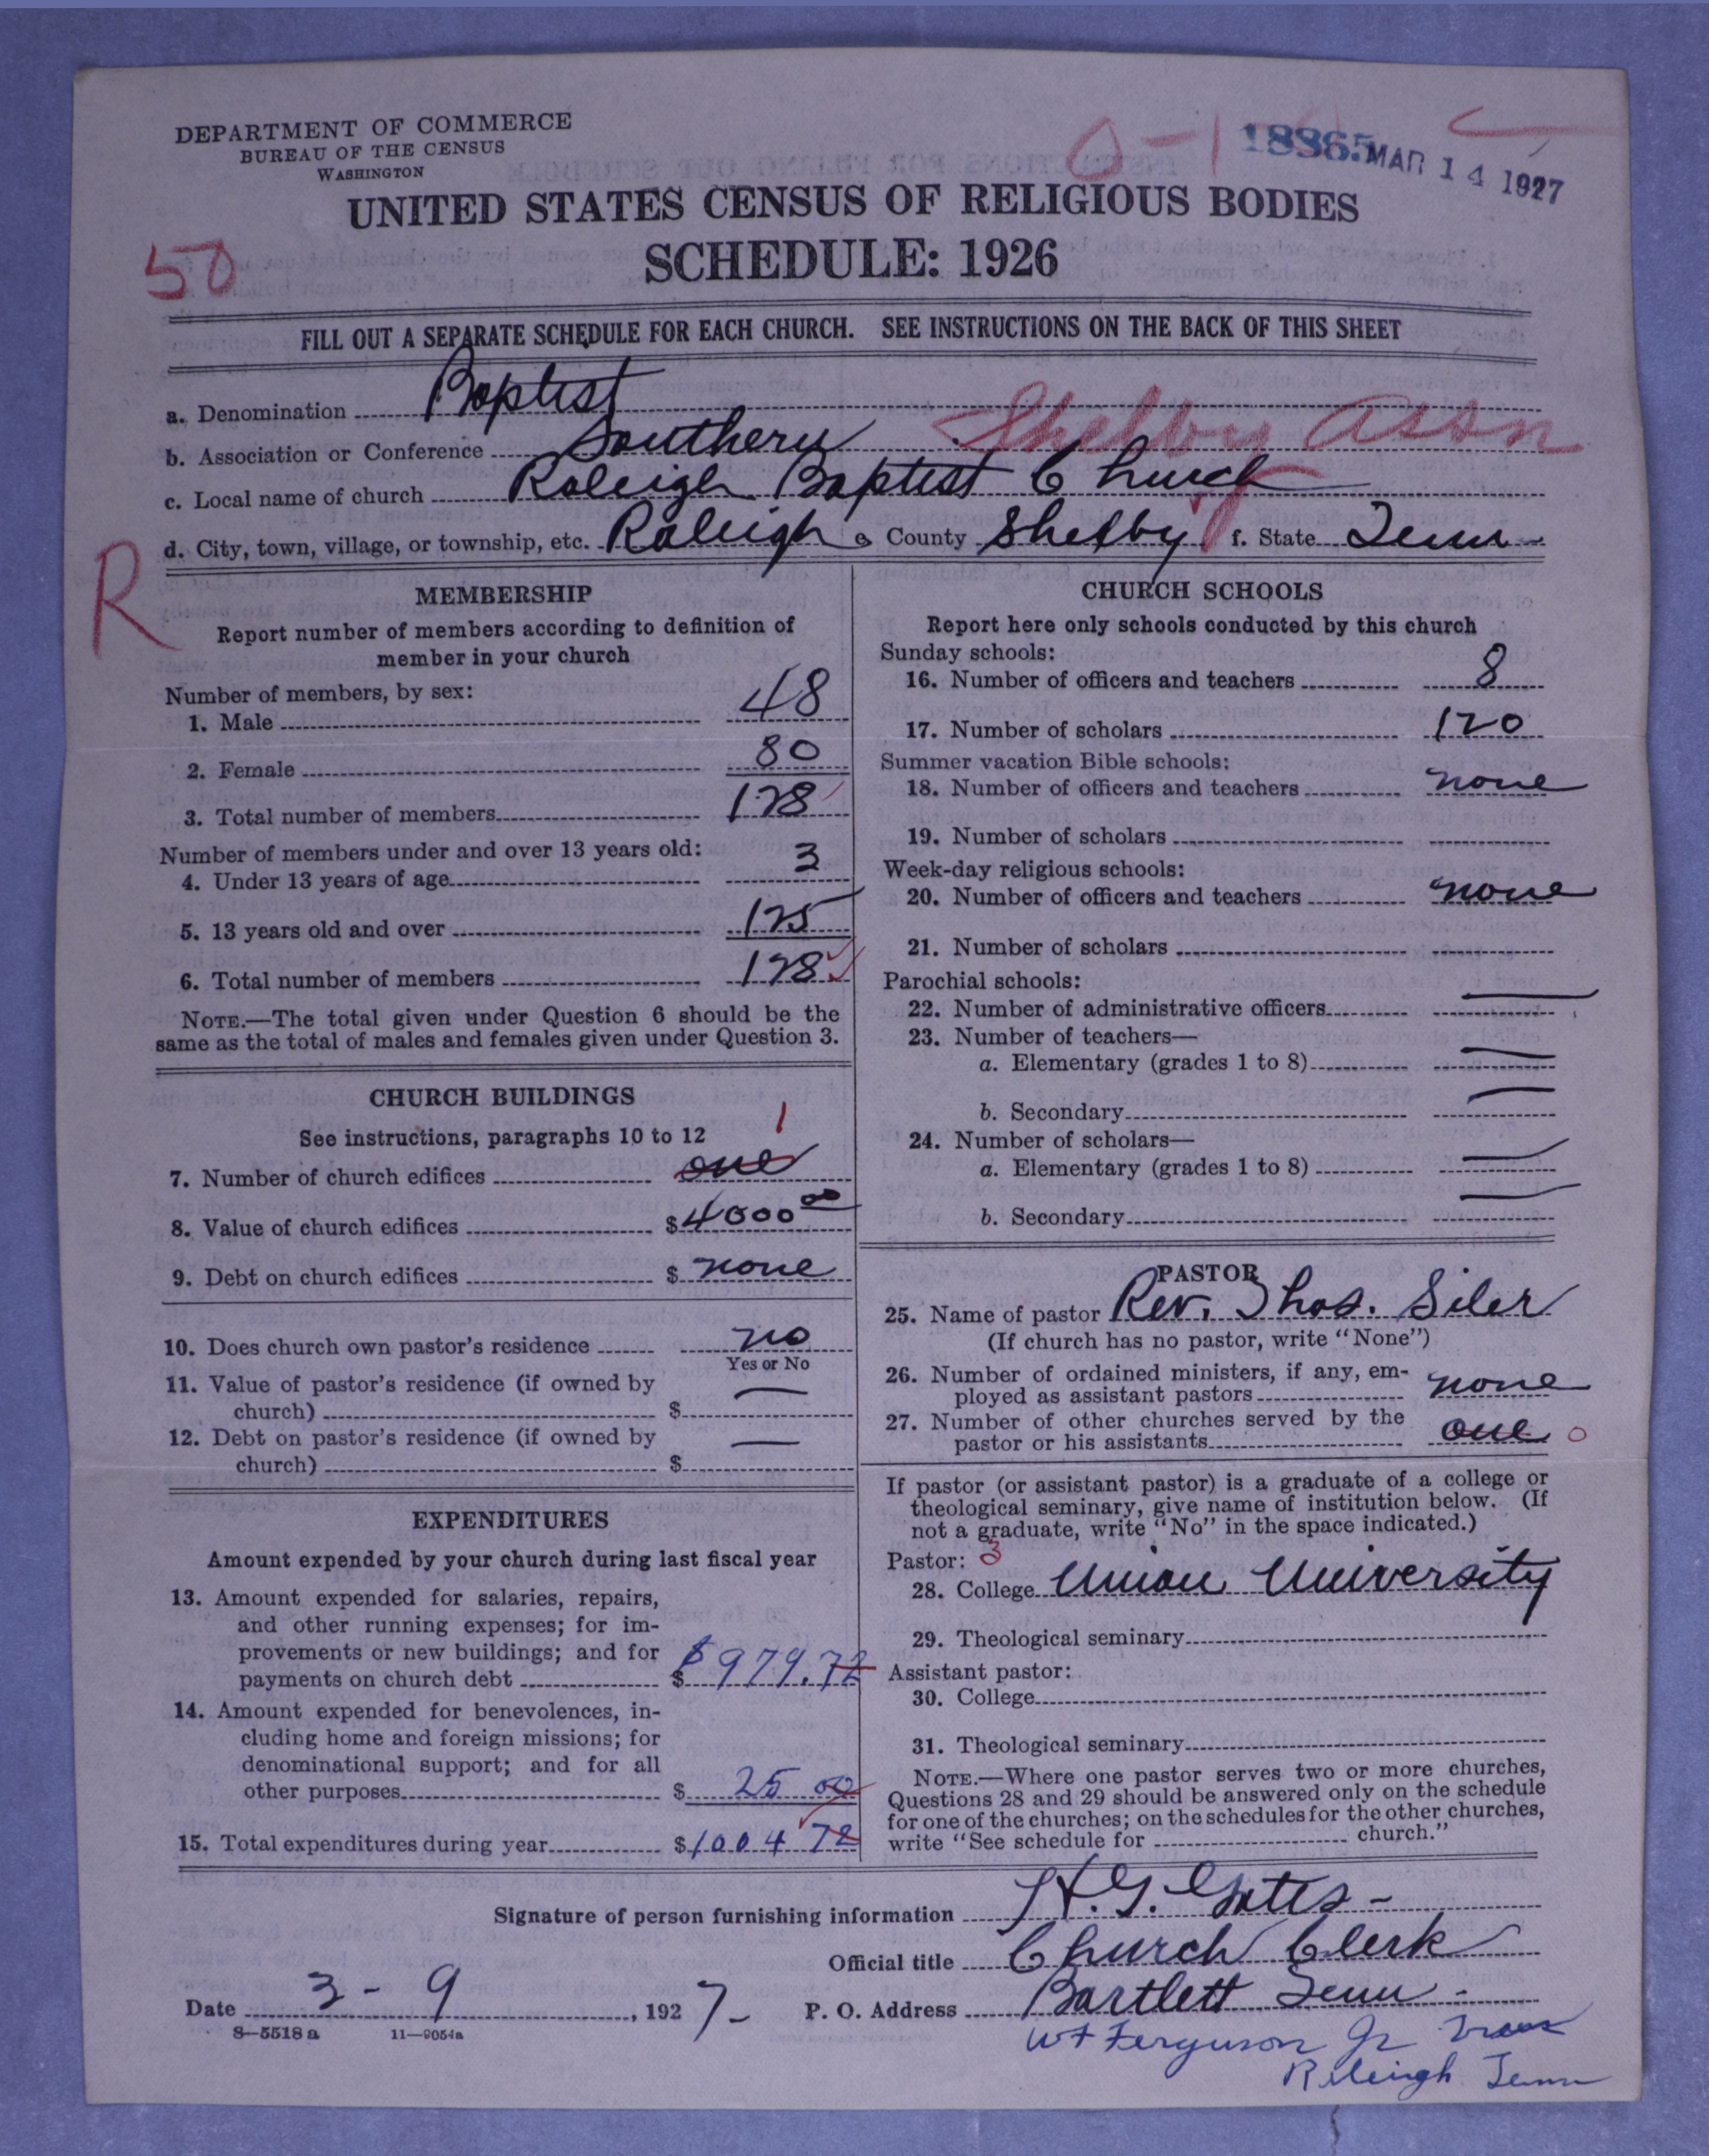 DEPARTMENT OF COMMERCE
BUREAU OF THE CENSUS
WASHINGTON
0-1
18865
MAR 14 1927
UNITED STATES CENSUS OF RELIGIOUS BODIES
SCHEDULE: 1926
50
FILL OUT A SEPARATE SCHEDULE FOR EACH CHURCH. SEE INSTRUCTIONS ON THE BACK OF THIS SHEET
a. Denomination Baptist
b. Association or Conference Southern Shelby Assn
c. Local name of church Raleigh Baptist Church
d. City, town, village, or township, etc. Raleigh e. County Shelby f. State Tenn
R
MEMBERSHIP
Report number of members according to definition of
member in your church
Number of members, by sex:
1. Male 48
2. Female 80
3. Total number of members 128
Number of members under and over 13 years old:
4. Under 13 years of age 3
5. 13 years old and over 125
6. Total number of members 128
NOTE.—The total given under Question 6 should be the
same as the total of males and females given under Question 3.
CHURCH BUILDINGS
See instructions, paragraphs 10 to 12
1
7. Number of church edifices one
8. Value of church edifices $4000 00
9. Debt on church edifices $ none
10. Does church own pastor's residence no
Yes or No
11. Value of pastor's residence (if owned by
church) $ —
12. Debt on pastor's residence (if owned by
church) $ —
EXPENDITURES
Amount expended by your church during last fiscal year
13. Amount expended for salaries, repairs,
and other running expenses; for im-
provements or new buildings; and for
payments on church debt $ $979.72
14. Amount expended for benevolences, in-
cluding home and foreign missions; for
denominational support; and for all
other purposes $ 25 00
15. Total expenditures during year $1004 72
CHURCH SCHOOLS
Report here only schools conducted by this church
Sunday schools:
16. Number of officers and teachers 8
17. Number of scholars 120
Summer vacation Bible schools:
18. Number of officers and teachers none
19. Number of scholars
Week-day religious schools:
20. Number of officers and teachers none
21. Number of scholars
Parochial schools:
22. Number of administrative officers —
23. Number of teachers—
a. Elementary (grades 1 to 8) —
b. Secondary —
24. Number of scholars—
a. Elementary (grades 1 to 8) —
b. Secondary —
PASTOR
25. Name of pastor Rev. Thos. Siler
(If church has no pastor, write "None")
26. Number of ordained ministers, if any, em-
ployed as assistant pastors none
27. Number of other churches served by the
pastor or his assistants one 0
If pastor (or assistant pastor) is a graduate of a college or
theological seminary, give name of institution below. (If
not a graduate, write "No" in the space indicated.)
Pastor: 3
28. College Union University
29. Theological seminary
Assistant pastor:
30. College
31. Theological seminary
NOTE.—Where one pastor serves two or more churches,
Questions 28 and 29 should be answered only on the schedule
for one of the churches; on the schedules for the other churches,
write "See schedule for church."
Signature of person furnishing information H. G. Gates -
Official title Church Clerk
Date 3 - 9, 1927 - P. O. Address Bartlett Tenn -
8-5518a 11—9054a
W F Ferguson Jr Treas
Raleigh Tenn